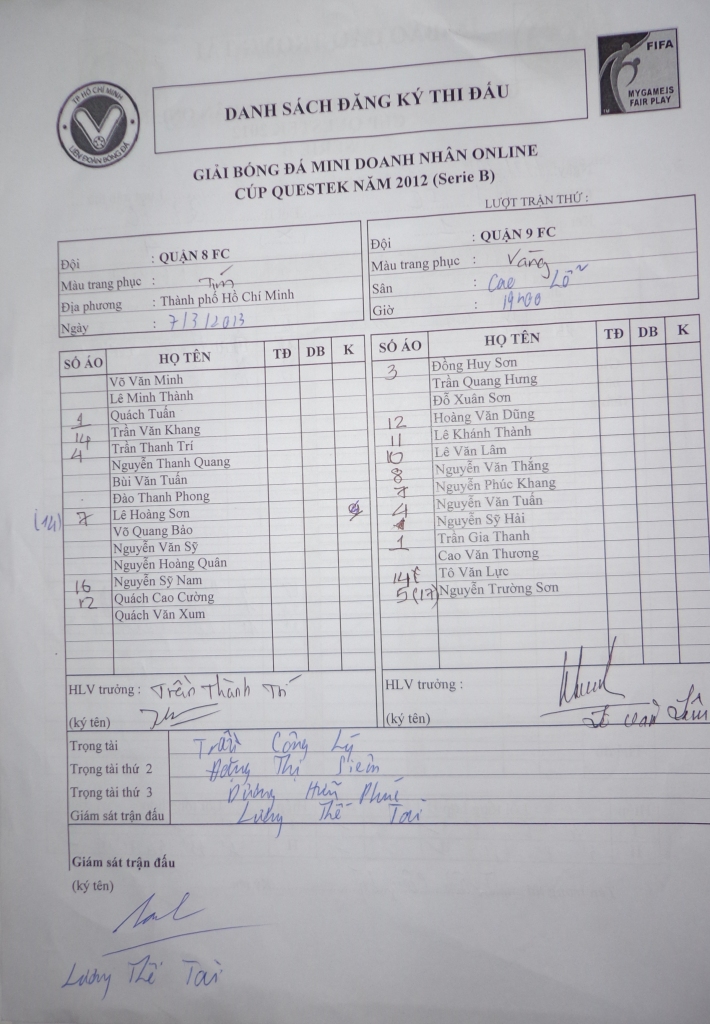 TP HỒ CHÍ MINH
LIÊN ĐOÀN BÓNG ĐÁ
DANH SÁCH ĐĂNG KÝ THI ĐẤU
FIFA
MYGAMEIS
FAIR PLAY
GIẢI BÓNG ĐÁ MINI DOANH NHÂN ONLINE
CÚP QUESTEK NĂM 2012 (Serie B)
LƯỢT TRẬN THỨ :
Đội : QUẬN 8 FC
Màu trang phục : Tím
Địa phương : Thành phố Hồ Chí Minh
Ngày : 7/3/2013
Đội : QUẬN 9 FC
Màu trang phục : Vàng
Sân : Cao Lỗ
Giờ : 19h00
SỐ ÁO HỌ TÊN TĐ DB K
Võ Văn Minh
Lê Minh Thành
1 Quách Tuấn
14 Trần Văn Khang
4 Trần Thanh Trí
Nguyễn Thanh Quang
Bùi Văn Tuấn
Đào Thanh Phong
(14) 7 Lê Hoàng Sơn
Võ Quang Bảo
Nguyễn Văn Sỹ
Nguyễn Hoàng Quân
16 Nguyễn Sỹ Nam
12 Quách Cao Cường
Quách Văn Xum
SỐ ÁO HỌ TÊN TĐ DB K
3 Đồng Huy Sơn
Trần Quang Hưng
Đỗ Xuân Sơn
12 Hoàng Văn Dũng
11 Lê Khánh Thành
10 Lê Văn Lâm
8 Nguyễn Văn Thắng
7 Nguyễn Phúc Khang
4 Nguyễn Văn Tuấn
Nguyễn Sỹ Hải
1 Trần Gia Thanh
Cao Văn Thương
14 Tô Văn Lực
5 (17) Nguyễn Trường Sơn
HLV trưởng : Trần Thành Trí
(ký tên)
HLV trưởng :
(ký tên) Lê Văn Lâm
Trọng tài Trần Công Lý
Trọng tài thứ 2 Đặng Thị Siêm
Trọng tài thứ 3 Dương Hữu Phúc
Giám sát trận đấu Lương Thế Tài
Giám sát trận đấu
(ký tên)
Lương Thế Tài